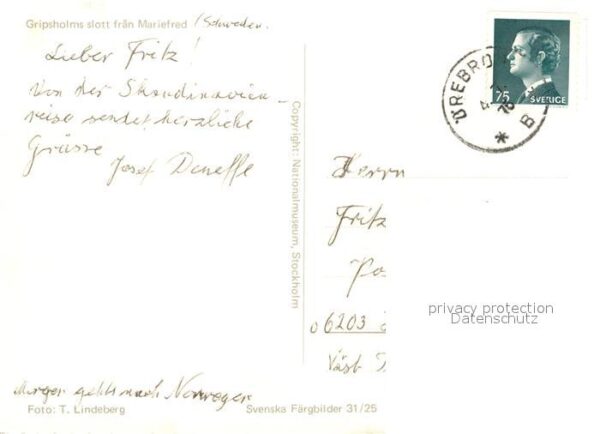 Gripsholms slott från Mariefred / Schweden.
Lieber Fritz!
Von der Skandinavien-
reise sendet herzliche
Grüsse
Josef Deneffe
Copyright: Nationalmuseum, Stockholm
ÖREBRO
75 SVERIGE
76
* B
Herrn
Fritz
6203
privacy protection
Datenschutz
Morgen geht's nach Norwegen
Foto: T. Lindeberg
Svenska Färgbilder 31/25